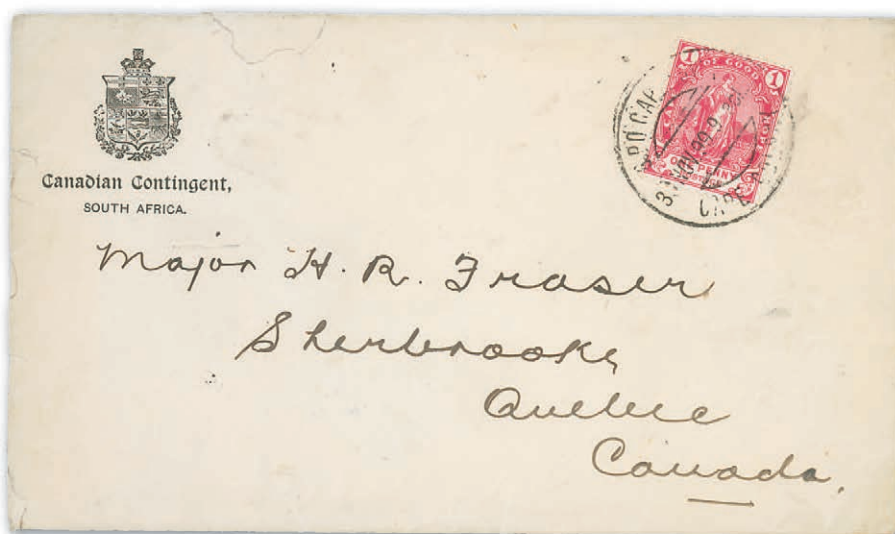 Canadian Contingent,
SOUTH AFRICA.
1 OF GOOD 1
HOPE
Major H. R. Fraser
Sherbrooke
Quebec
Canada.